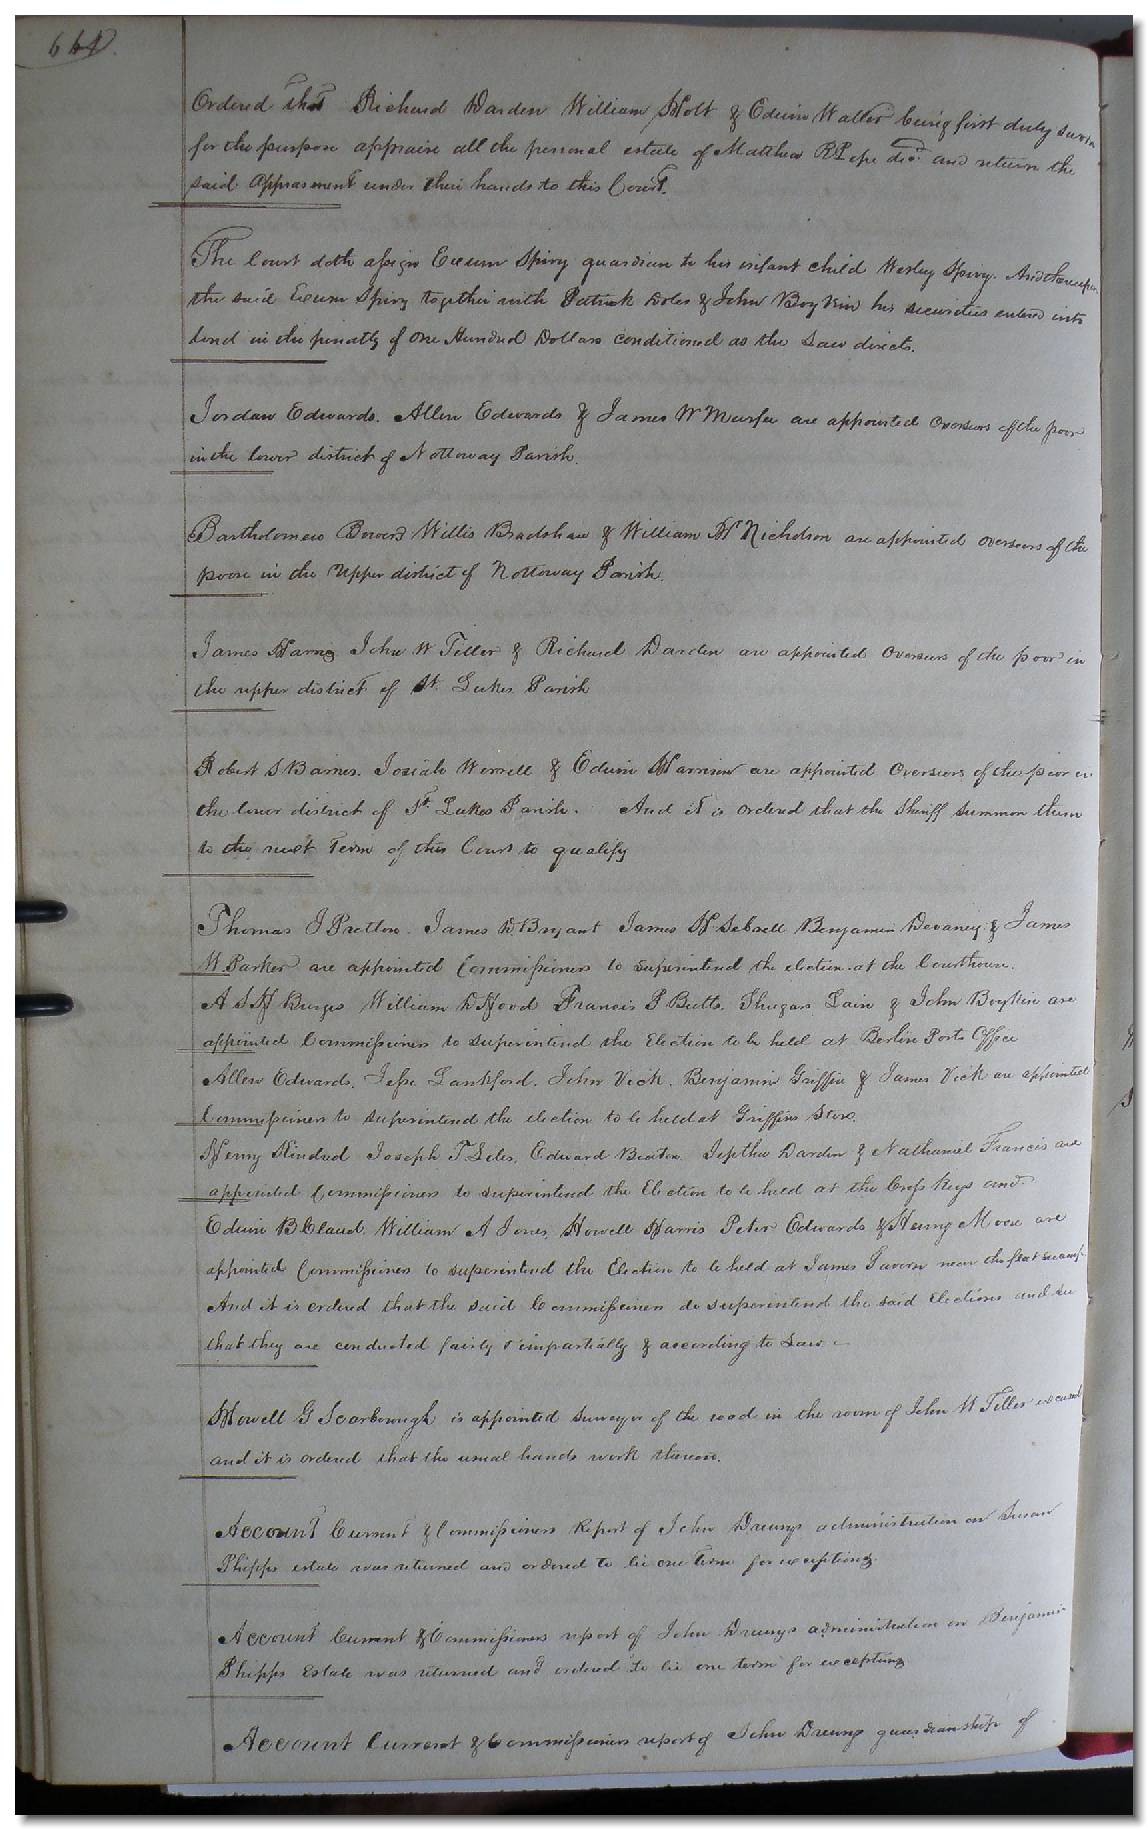 664.
Ordered that Richard Darden William Holt & Edwin Waller being first duly sworn
for the purpose appraise all the personal estate of Matthew R Pope decd. and return the
said Apprasment under their hands to this Court.
The Court doth assign Exum Spivy guardian to his infant child Wesley Spivy. And thereupon
the said Exum Spivy together with Patrick Doles & John Boykin his securities entered into
bond in the penalty of One Hundred Dollars conditioned as the Law directs.
Jordan Edwards. Allen Edwards & James W Murfee are appointed Overseers of the poor
in the lower district of Nottoway Parish.
Bartholomew Bowers Willis Bradshaw & William H Nicholson are appointed overseers of the
poore in the Upper district of Nottoway Parish.
James Harris John W Tiller & Richard Darden are appointed Overseers of the poor in
the upper district of St. Lukes Parish
Robert S Barnes. Josiah Worrell & Edwin Harrison are appointed Overseers of the poor in
the lower district of St. Lukes Parish. And it is ordered that the Sheriff summon them
to the next Term of this Court to qualify
Thomas J Pretlow. James D Bryant James H Sebrell Benjamin Devaney & James
W. Parker are appointed Commissioners to superintend the election at the Courthouse.
A S H Burges William D Hood Francis P Butts. Lain & John Boykin are
appointed Commissioners to superintend the Election to be held at Berlin Posts Office
Allen Edwards. Jesse Lankford. John Vick. Benjamin Griffin & James Vick are appointed
Commissioners to superintend the election to be held at Griffins Store.
Henry Kindred Joseph T Liles. Edward Beaton. Jepthu Darden & Nathaniel Francis are
appointed Commissioners to superintend the Election to be held at the Cross Keys and.
Edwin B Claud. William A Jones. Howell Harris Peter Edwards & Henry Moore are
appointed Commissioners to superintend the Election to be held at James Tavern near the flat swamp.
And it is ordered that the said Commissioners do superintend the said Elections and see
that they are conducted fairly & impartially & according to Law.
Howell G Scarborough is appointed surveyor of the road in the room of John W Tiller excused
and it is ordered that the usual hands work thereon.
Account Current & Commissioners Report of John Drewrys administration on Susan
Phipps estate was returned and ordered to lie one term for exceptions.
Account Current & Commissioners report of John Drewrys administration on Benjamin
Phipps Estate was returned and ordered to lie one term for exceptions
Account Current & Commissioners report of John Drewrys guardianship of